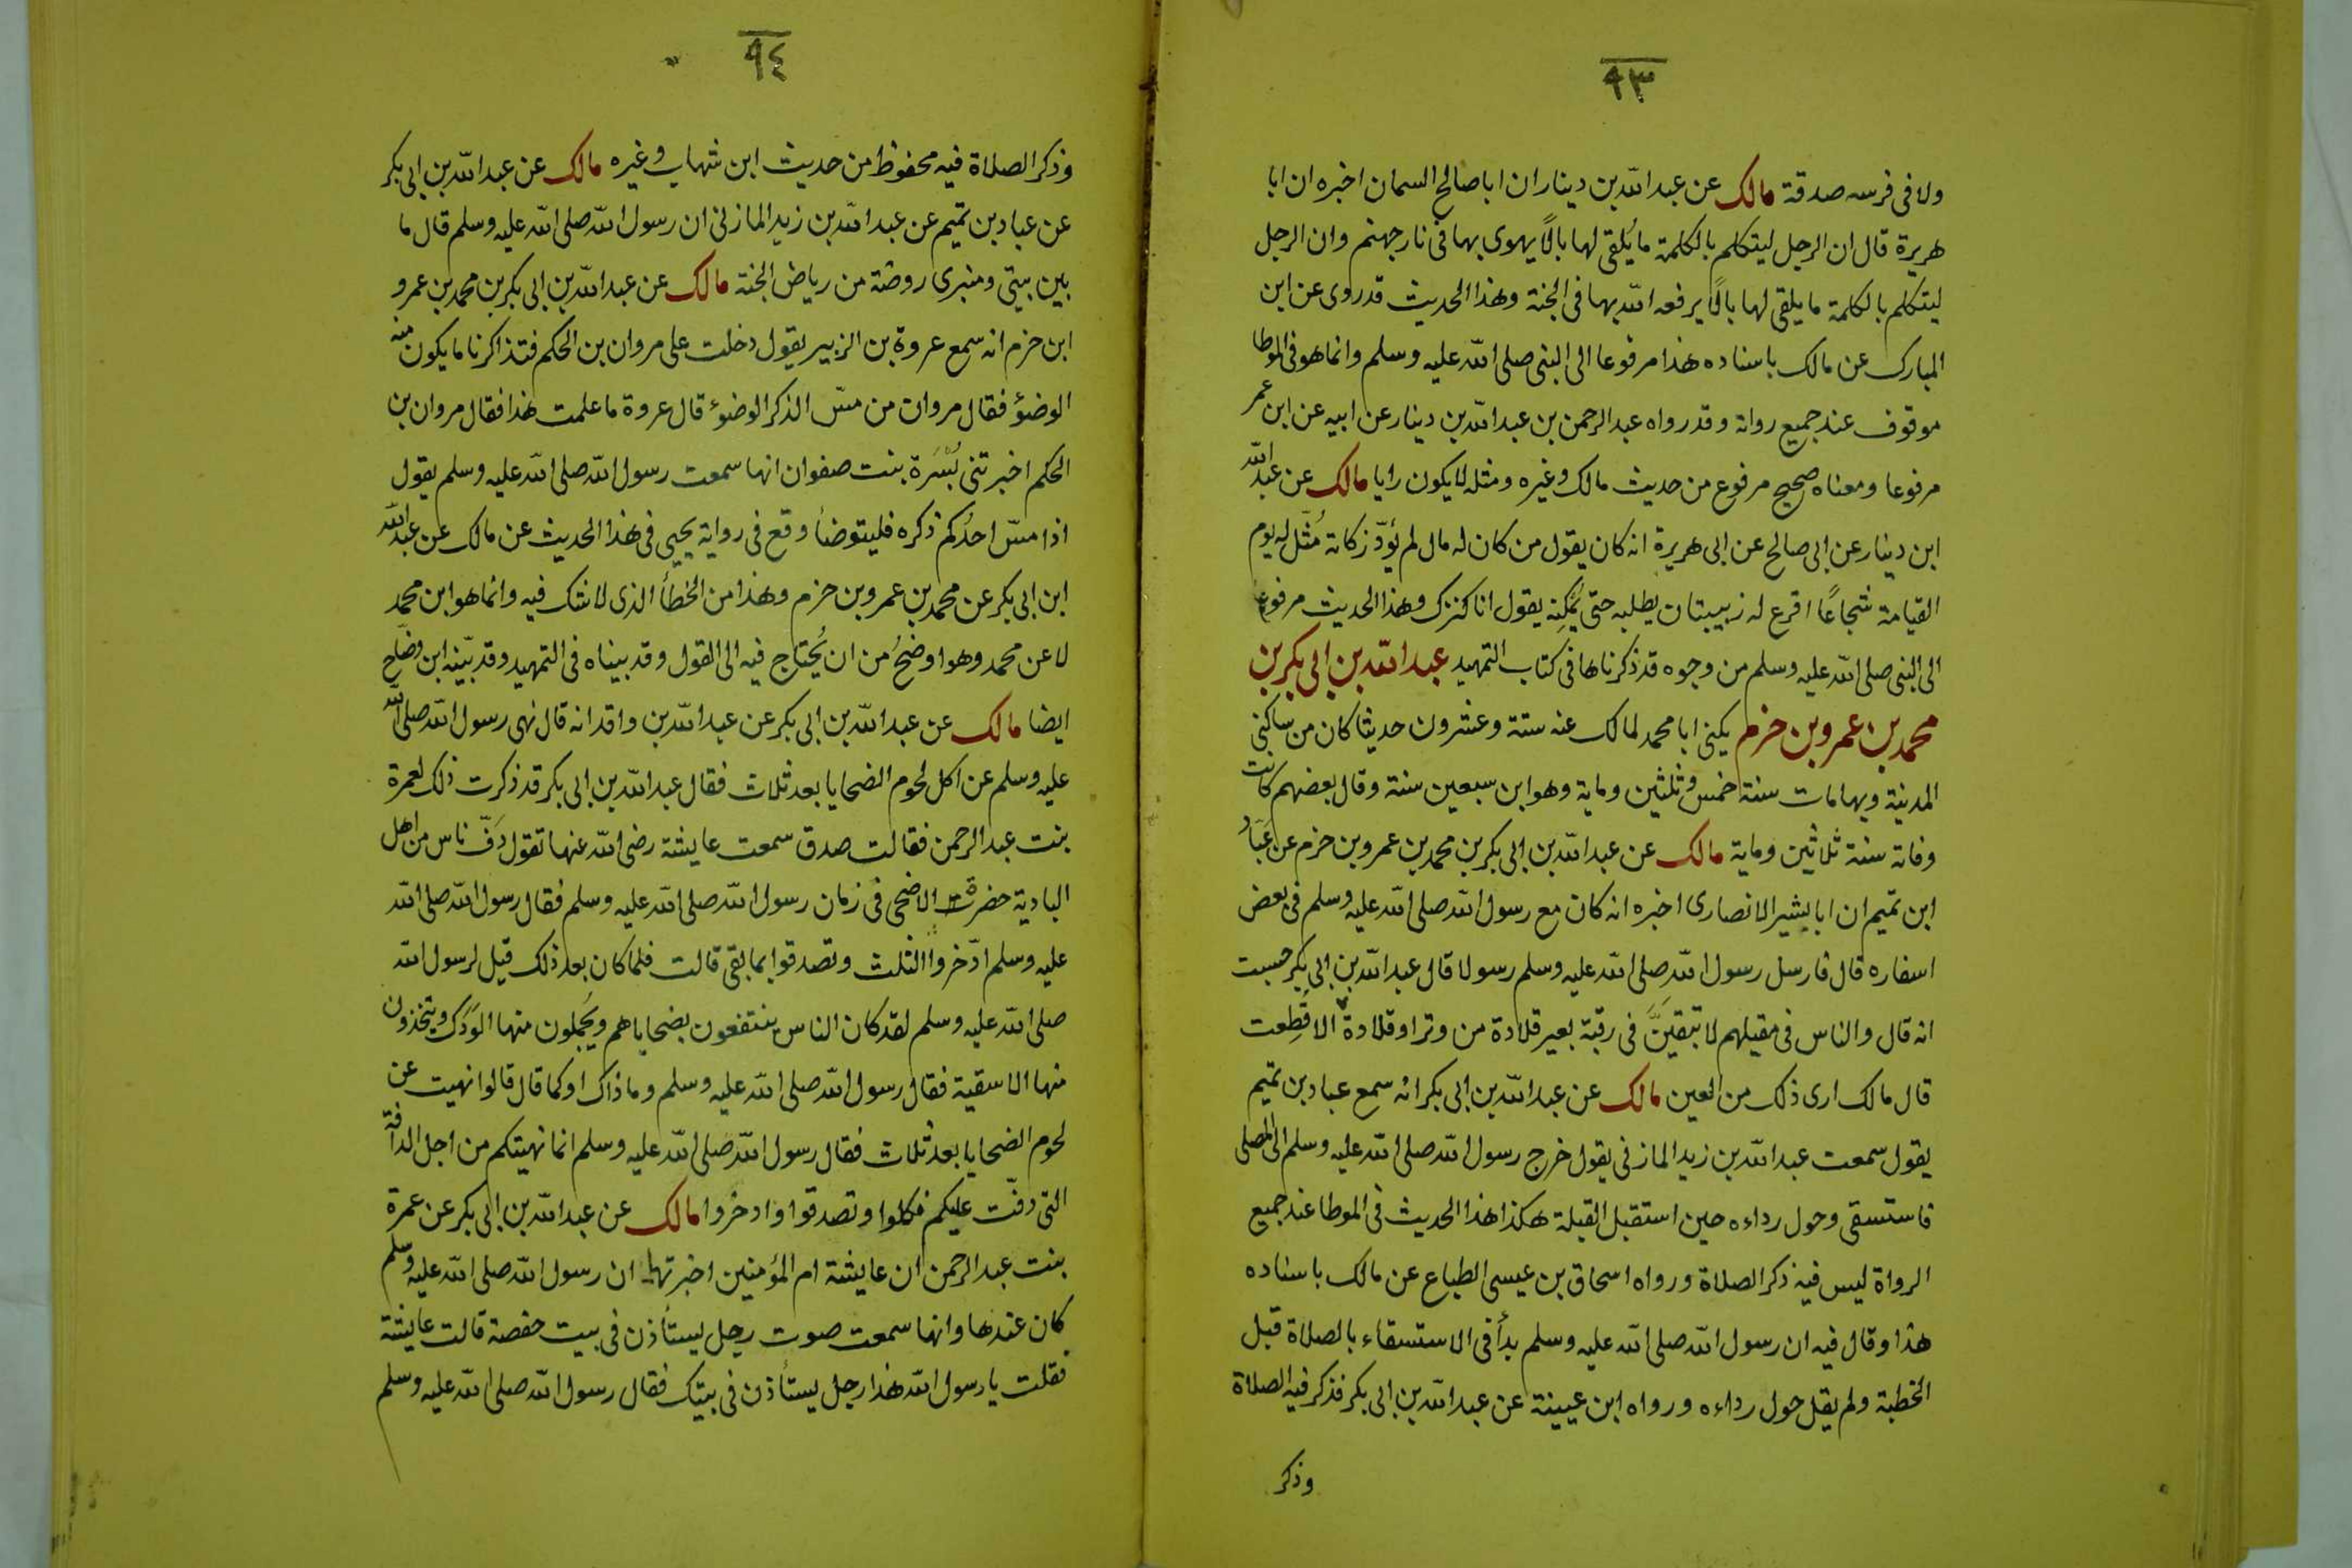 ٩٣
ولا فى فرسه صدقة مالك عن عبد الله بن دينار ان ابا صالح السمان اخبره ان ابا
هريرة قال ان الرجل ليتكلم بالكلمة ما يُلقى لها بالًا يهوى بها فى نار جهنم وان الرجل
ليتكلم بالكلمة ما يلقى لها بالًا يرفعه الله بها فى الجنة وهذا الحديث قد روى عن ابن
المبارك عن مالك باسناده هذا مرفوعا الى النبى صلى الله عليه وسلم وانما هو فى الموطا
موقوف عند جميع رواته وقد رواه عبد الرحمن بن عبد الله بن دينار عن ابيه عن ابن عمر
مرفوعا ومعناه صحيح مرفوع من حديث مالك وغيره ومثله لا يكون رايا مالك عن عبد الله
ابن دينار عن ابى صالح عن ابى هريرة انه كان يقول من كان له مال لم يؤدّ زكاته مُثّل له يوم
القيامة شجاعًا اقرع له زبيبتان يطلبه حتى يُمْكِنه يقول انا كنزك وهذا الحديث مرفوع
الى النبى صلى الله عليه وسلم من وجوه قد ذكرناها فى كتاب التمهيد عبد الله بن ابى بكر بن
محمد بن عمرو بن حزم يكنى ابا محمد لمالك عنه ستة وعشرون حديثا كان من ساكنى
المدينة وبها مات سنة خمس وثلثين وماية وهو ابن سبعين سنة وقال بعضهم كانت
وفاته سنة ثلاثين وماية مالك عن عبد الله بن ابى بكر بن محمد بن عمرو بن حزم عن عَبّاد
ابن تميم ان ابا بشير الانصارى اخبره انه كان مع رسول الله صلى الله عليه وسلم فى بعض
اسفاره قال فارسل رسول الله صلى الله عليه وسلم رسولا قال عبد الله بن ابى بكر حسبت
انه قال والناس فى مقيلهم لا تبقينَّ فى رقبة بعير قلادة من وتر او قلادة الا قُطِعت
قال مالك ارى ذلك من العين مالك عن عبد الله بن ابى بكر انه سمع عباد بن تميم
يقول سمعت عبد الله بن زيد المازنى يقول خرج رسول الله صلى الله عليه وسلم الى المصلى
فاستسقى وحول رداءه حين استقبل القبلة هكذا هذا الحديث فى الموطا عند جميع
الرواة ليس فيه ذكر الصلاة ورواه اسحاق بن عيسى الطباع عن مالك باسناده
هذا وقال فيه ان رسول الله صلى الله عليه وسلم بدأ فى الاستسقاء بالصلاة قبل
الخطبة ولم يقل حول رداءه ورواه ابن عيينة عن عبد الله بن ابى بكر فذكر فيه الصلاة
وذكر
٩٤
وذكر الصلاة فيه محفوظ من حديث ابن شهاب وغيره مالك عن عبد الله بن ابى بكر
عن عباد بن تميم عن عبد الله بن زيد المازنى ان رسول الله صلى الله عليه وسلم قال ما
بين بيتى ومنبرى روضة من رياض الجنة مالك عن عبد الله بن ابى بكر بن محمد بن عمرو
ابن حزم انه سمع عروة بن الزبير يقول دخلت على مروان بن الحكم فتذاكرنا ما يكون منه
الوضؤ فقال مروان من مسّ الذكر الوضوء قال عروة ما علمت هذا فقال مروان بن
الحكم اخبرتنى بُسْرَة بنت صفوان انها سمعت رسول الله صلى الله عليه وسلم يقول
اذا مسّ احدُكم ذكره فليتوضأ وقع فى رواية يحيى فى هذا الحديث عن مالك عن عبد الله
ابن ابى بكر عن محمد بن عمرو بن حزم وهذا من الخطأ الذى لا شك فيه وانما هو ابن محمد
لا عن محمد وهو اوضحُ من ان يُحتاج فيه الى القول وقد بيناه فى التمهيد وقد بيّنه ابن وضّاح
ايضا مالك عن عبد الله بن ابى بكر عن عبد الله بن واقد انه قال نهى رسول الله صلى الله
عليه وسلم عن اكل لحوم الضحايا بعد ثلاث فقال عبد الله بن ابى بكر قد ذكرت ذلك لعمرة
بنت عبد الرحمن فقالت صدق سمعت عايشة رضى الله عنها تقول دَفّ ناس من اهل
البادية حضرت الاضحى فى زمان رسول الله صلى الله عليه وسلم فقال رسول الله صلى الله
عليه وسلم ادّخروا الثلث وتصدقوا بما بقى قالت فلما كان بعد ذلك قيل لرسول الله
صلى الله عليه وسلم لقد كان الناس ينتفعون بضحاياهم ويُجملون منها الوَدَك ويتخذون
منها الاسقية فقال رسول الله صلى الله عليه وسلم وما ذاك او كما قال قالوا نهيت عن
لحوم الضحايا بعد ثلاث فقال رسول الله صلى الله عليه وسلم انما نهيتكم من اجل الدافة
التى دفّت عليكم فكلوا وتصدقوا وادخروا مالك عن عبد الله بن ابى بكر عن عمرة
بنت عبد الرحمن ان عايشة ام المؤمنين اخبرتها ان رسول الله صلى الله عليه وسلم
كان عندها وانها سمعت صوت رجل يستأذن فى بيت حفصة قالت عايشة
فقلت يا رسول الله هذا رجل يستأذن فى بيتك فقال رسول الله صلى الله عليه وسلم